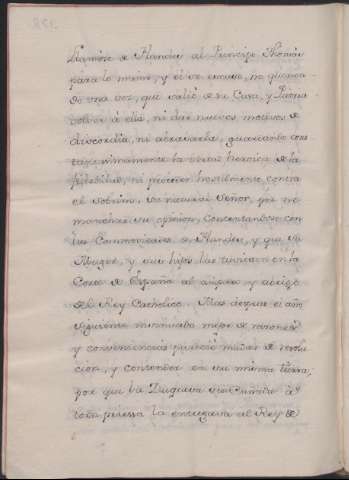 llamòle de Flandes al Principe Thomas
para lo mismo, y èl se escusò, no querien-
do una vez, que saliò de su Casa, y Patria
bolver à ella, ni dar nuevos motivos de
discordia, ni abrasarla, guardando cons-
tantissimamente la virtud heroica de la
fidelidad, ni proceder hostilmente contra
el sobrino, su natural Señor, por no
manchar su opinion, Contentandose con
las Comodidades de Flandes, y que su
Muger, y sus hijos las tuviesen en la
Corte de España al amparo y abrigo
del Rey Catholico. Mas despues el año
siguiente mirandolo mejor de razones
y conveniencias pareciò mudar de resolu
cion, y contender en su misma tierra,
por que la Duquesa su Cuñada à
toda priessa la entregava al Rey de